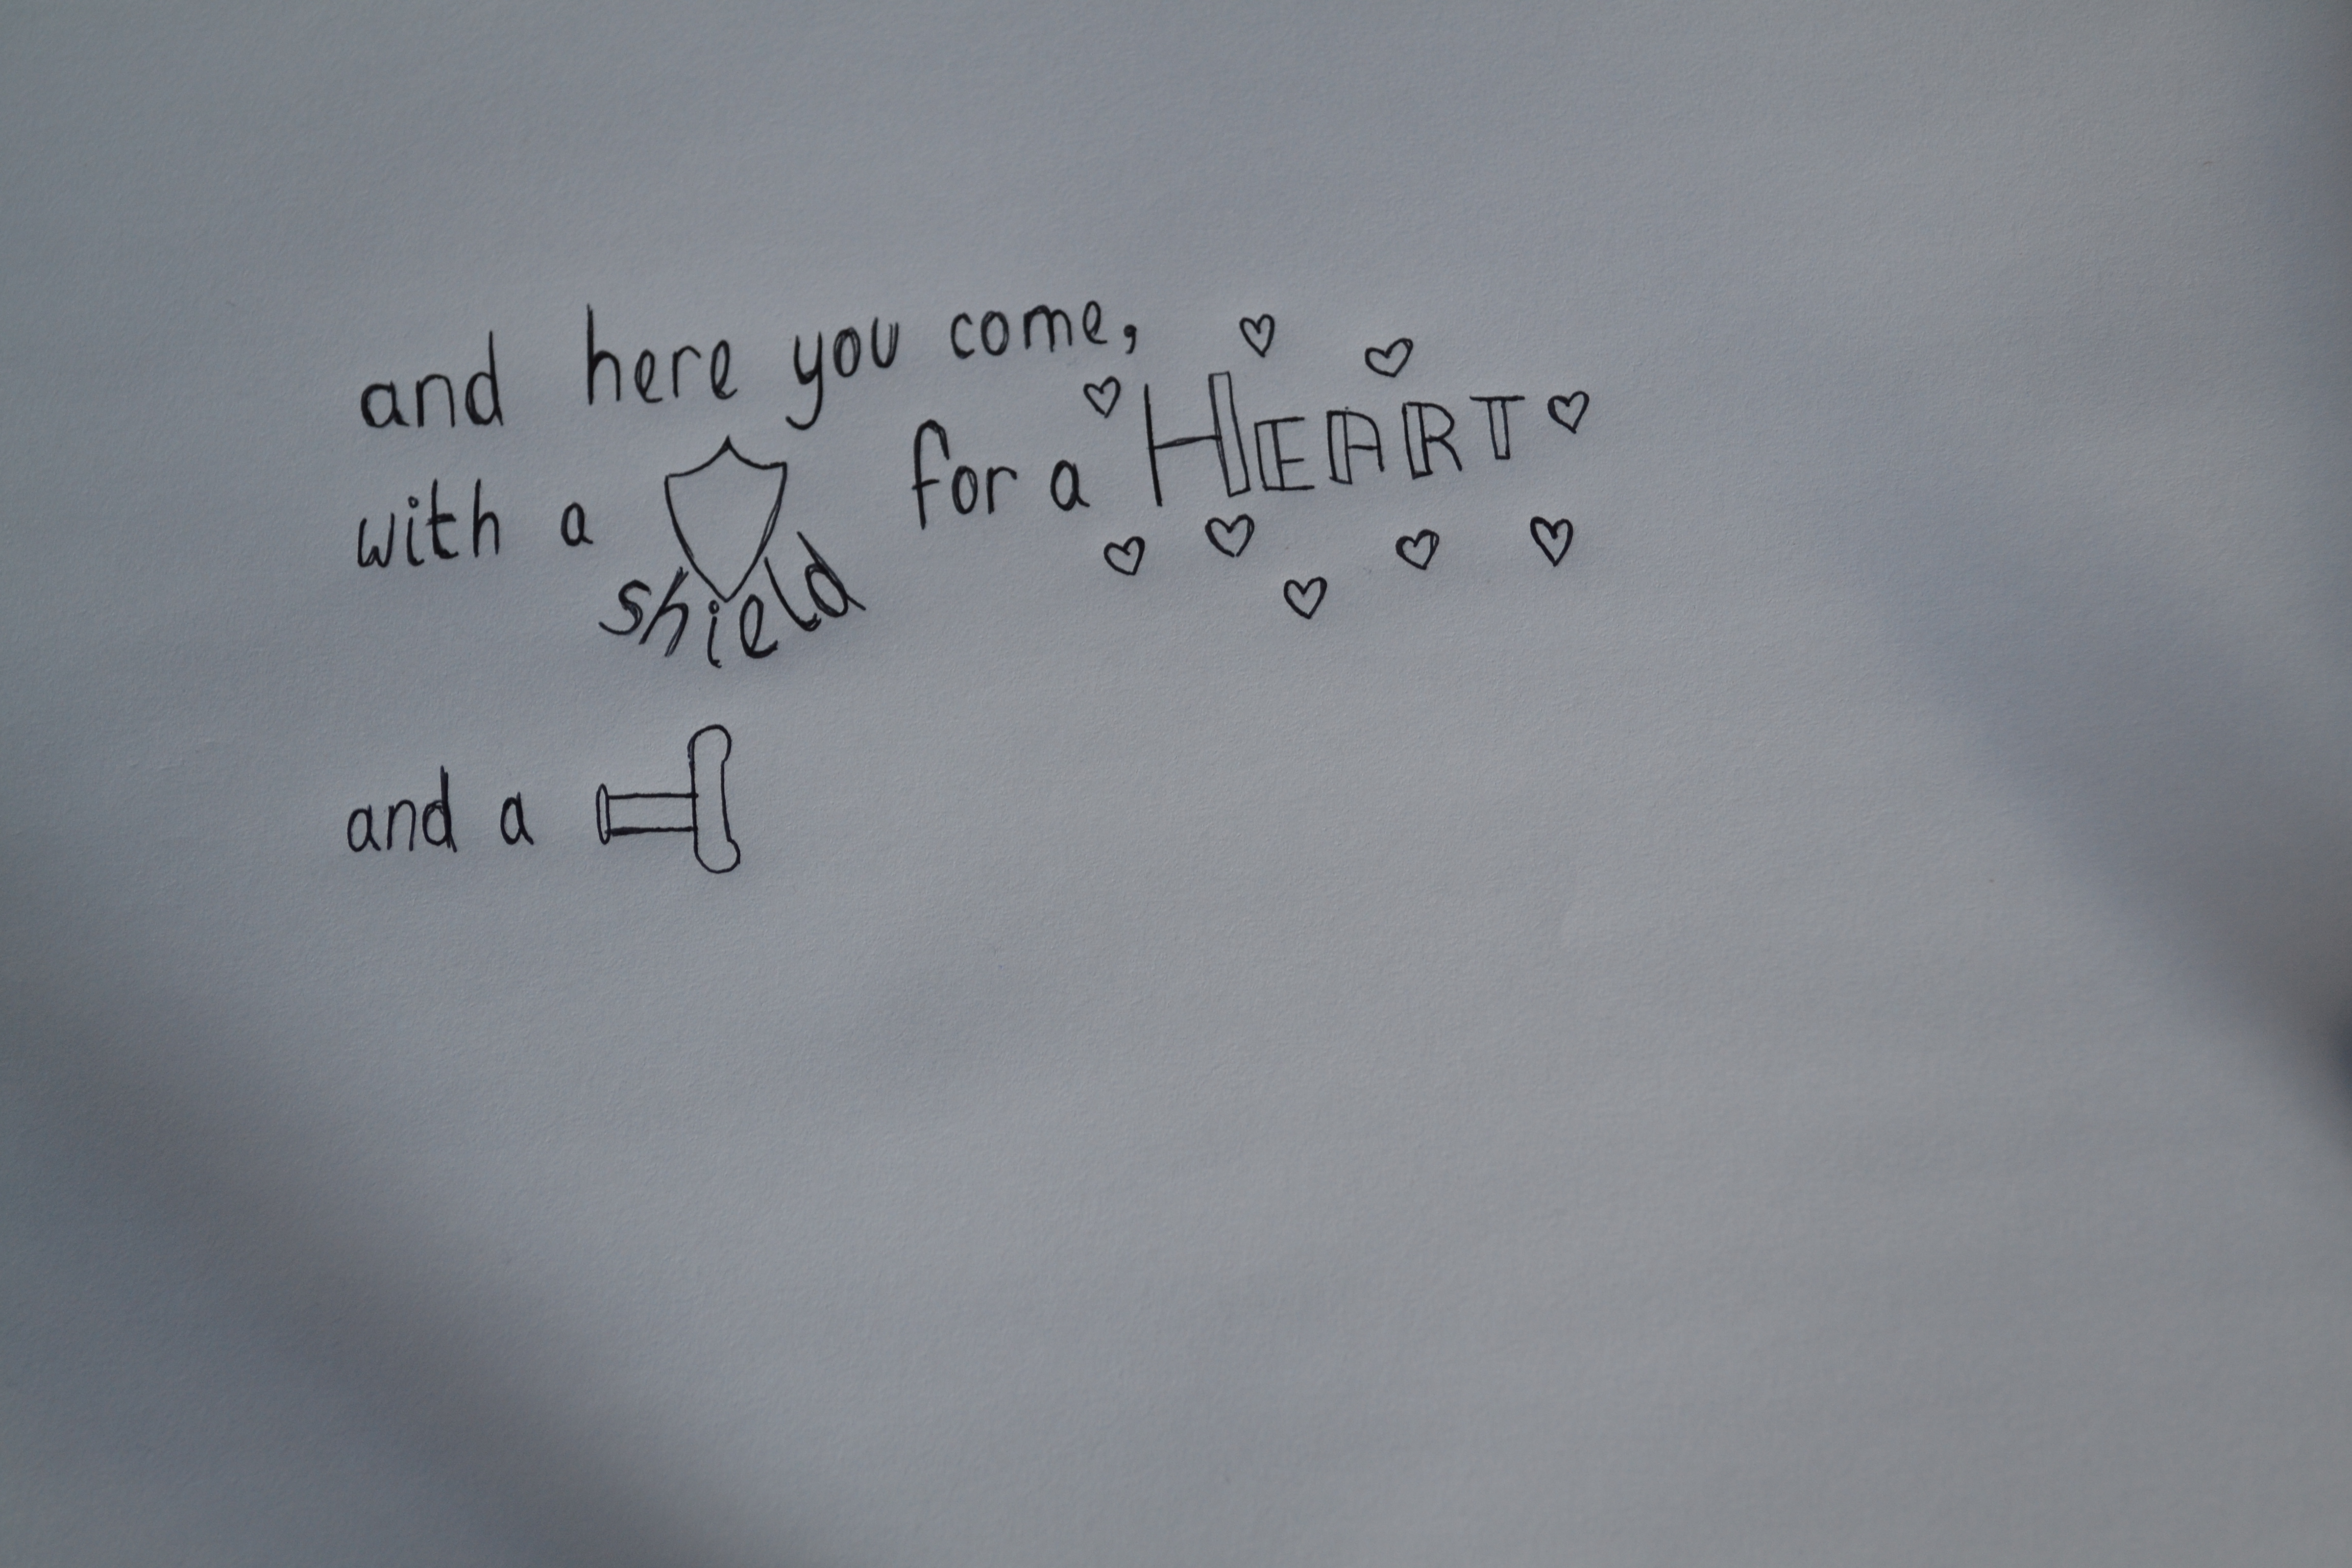 and here you come,
with a shield for a HEART
and a